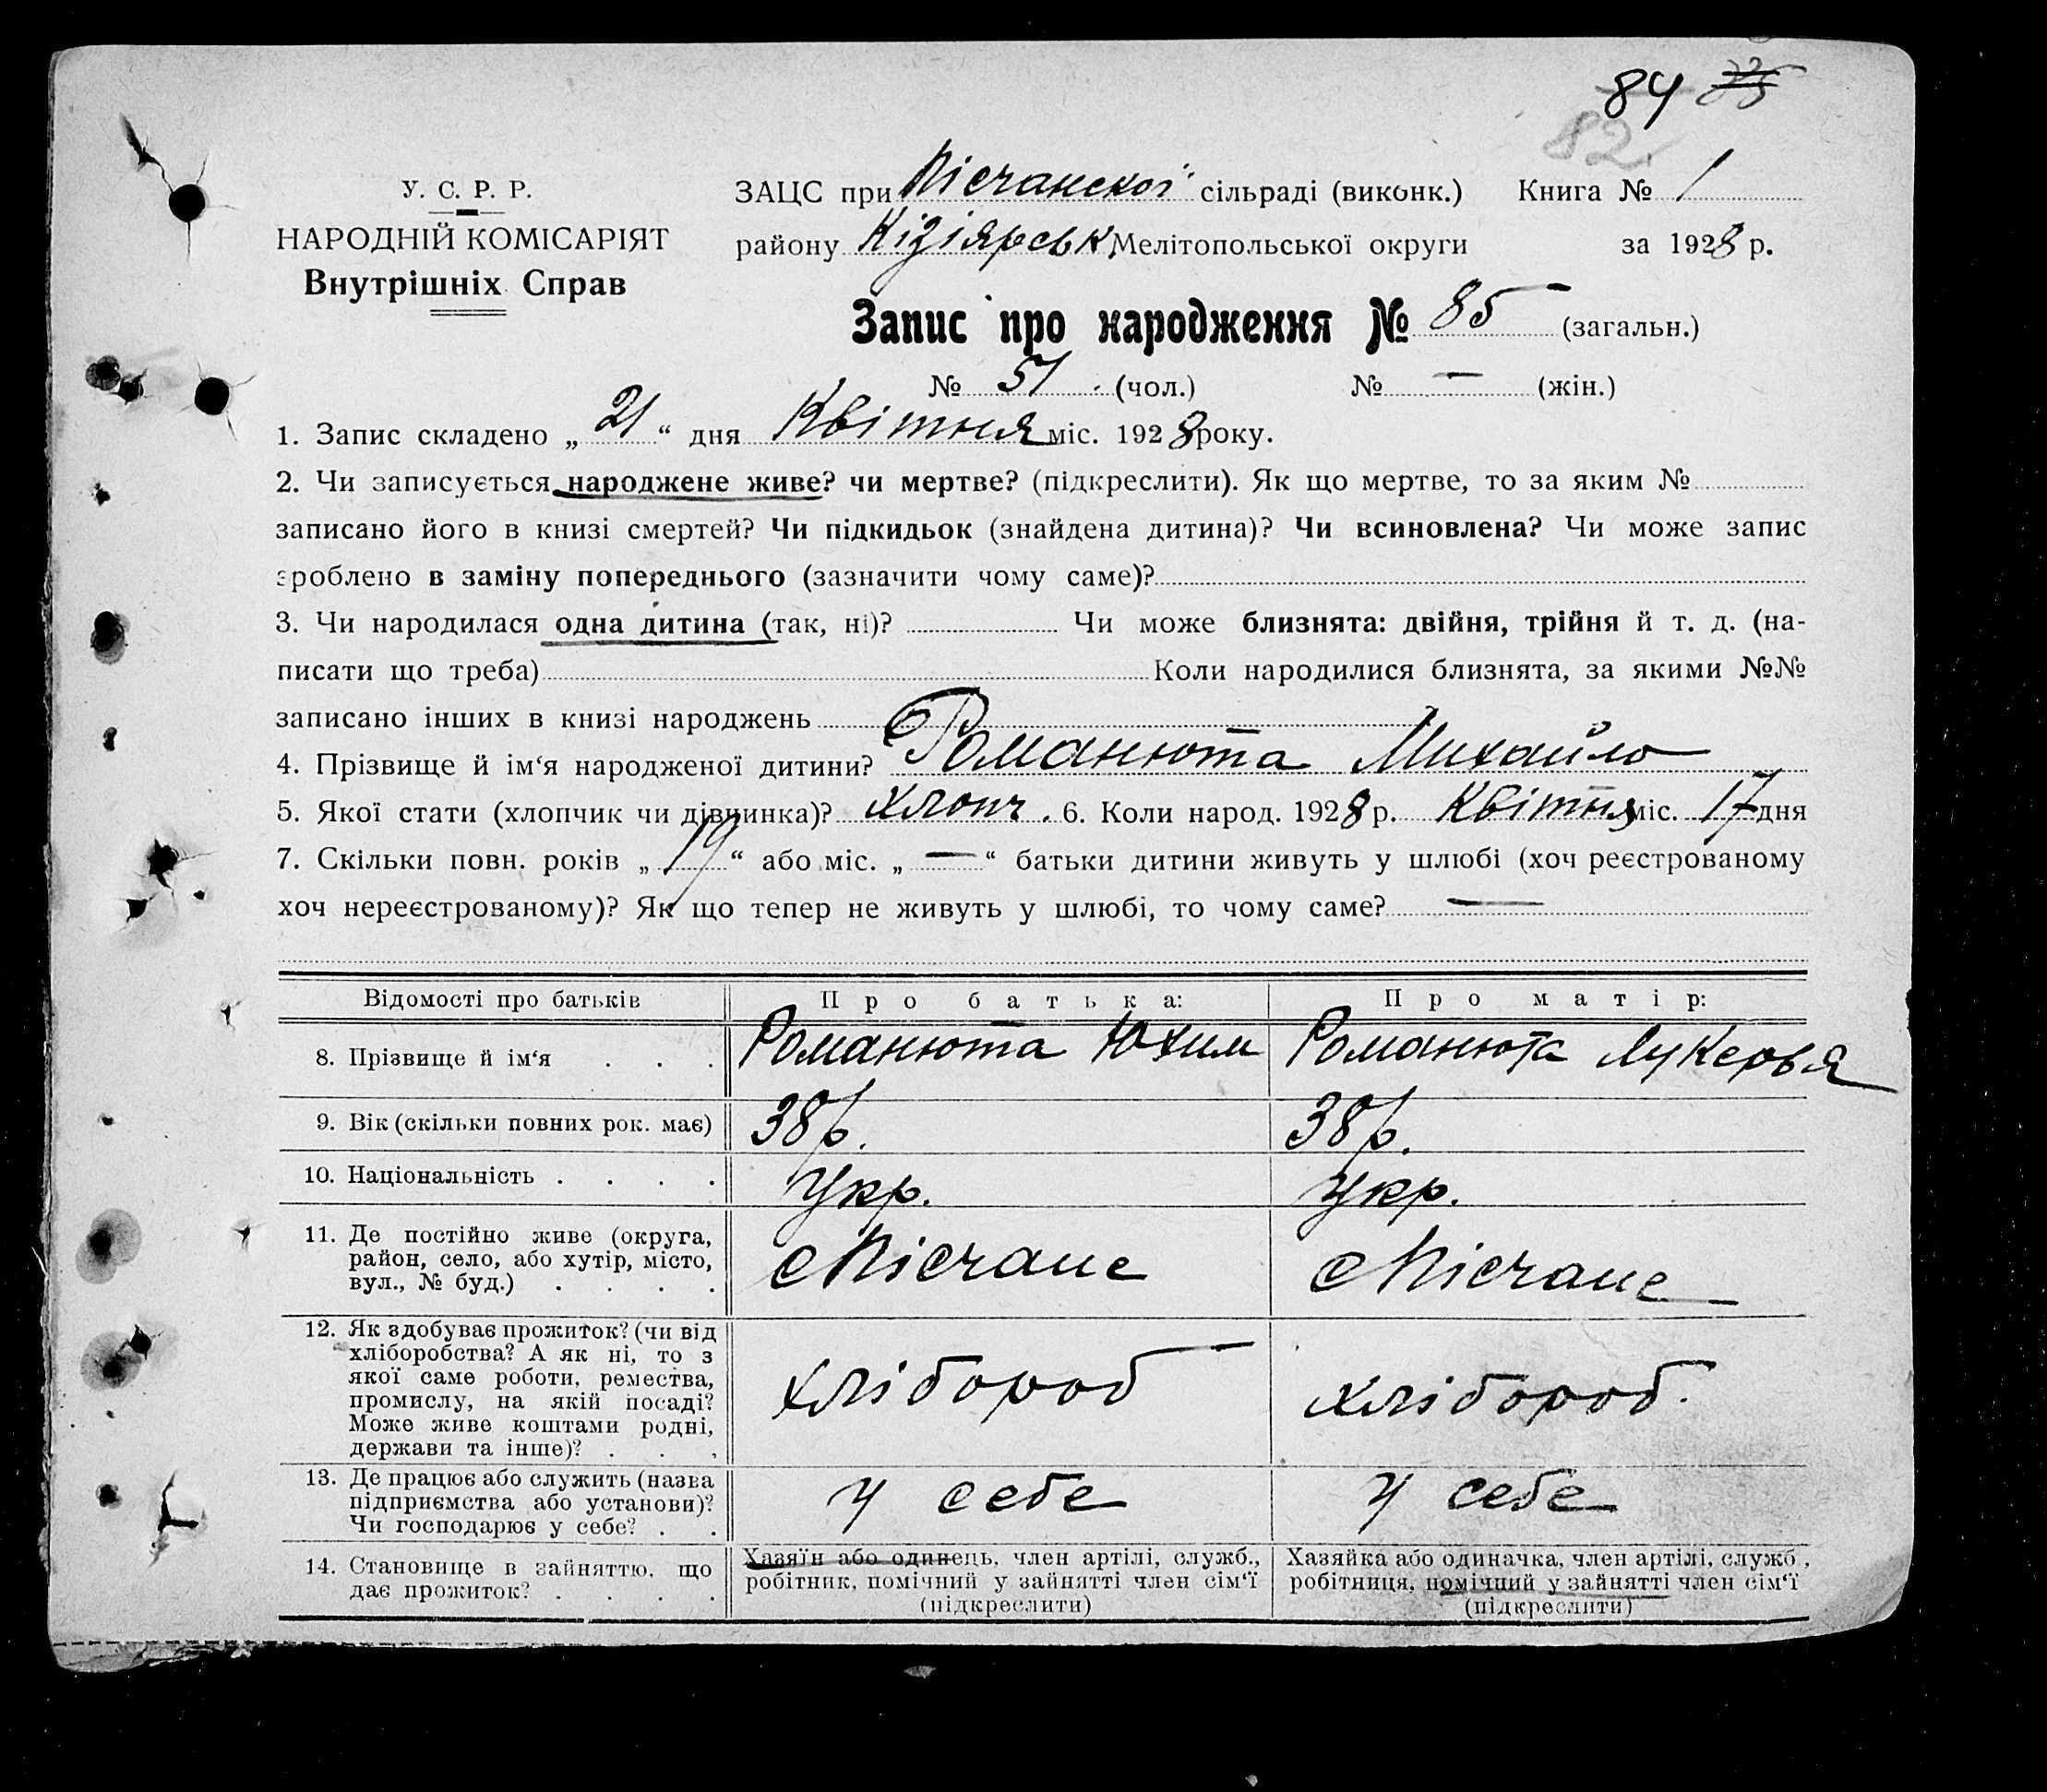 84 85
82.
У. С. Р. Р.
НАРОДНІЙ КОМІСАРІЯТ
Внутрішніх Справ
ЗАЦС при Пісчанскої сільраді (виконк.) Книга № 1
району Кізіярськ. Мелітопольської округи за 1928 р.
Запис про народження № 85 (загальн.)
№ 51 (чол.) № — (жін.)
1. Запис складено „ 21 “ дня Квітня міс. 1928 року.
2. Чи записується народжене живе? чи мертве? (підкреслити). Як що мертве, то за яким №
записано його в книзі смертей? Чи підкидьок (знайдена дитина)? Чи всиновлена? Чи може запис
зроблено в заміну попереднього (зазначити чому саме)?
3. Чи народилася одна дитина (так, ні)? Чи може близнята: двійня, трійня й т. д. (на-
писати що треба) Коли народилися близнята, за якими №№
записано інших в книзі народжень
4. Прізвище й ім‘я народженої дитини? Романюта Михайло
5. Якої стати (хлопчик чи дівчинка)? хлопч. 6. Коли народ. 1928 р. Квітня міс. 17 дня
7. Скільки повн. років „ 19 “ або міс. „ — “ батьки дитини живуть у шлюбі (хоч реєстрованому
хоч нереєстрованому)? Як що тепер не живуть у шлюбі, то чому саме? —
Відомості про батьків Про батька: Про матір:
8. Прізвище й ім‘я . . . Романюта Юхим Романюта Лукерья
9. Вік (скільки повних рок. має) 38 р. 38 р.
10. Національність . . . . Укр. Укр.
11. Де постійно живе (округа,
район, село, або хутір, місто,
вул., № буд.) . . . .
с Пісчане с Пісчане
12. Як здобуває прожиток? (чи від
хліборобства? А як ні, то з
якої саме роботи, ремества,
промислу, на якій посаді?
Може живе коштами родні,
держави та інше)? . . .
хлібороб хлібороб.
13. Де працює або служить (назва
підприємства або установи)?
Чи господарює у себе? . .
у себе у себе
14. Становище в зайняттю, що
дає прожиток? . . . .
Хазяїн або одинець, член артілі, служб.,
робітник, помічний у зайнятті член сім‘ї
(підкреслити)
Хазяйка або одиначка, член артілі, служб.,
робітниця, помічний у зайнятті член сім‘ї
(підкреслити)